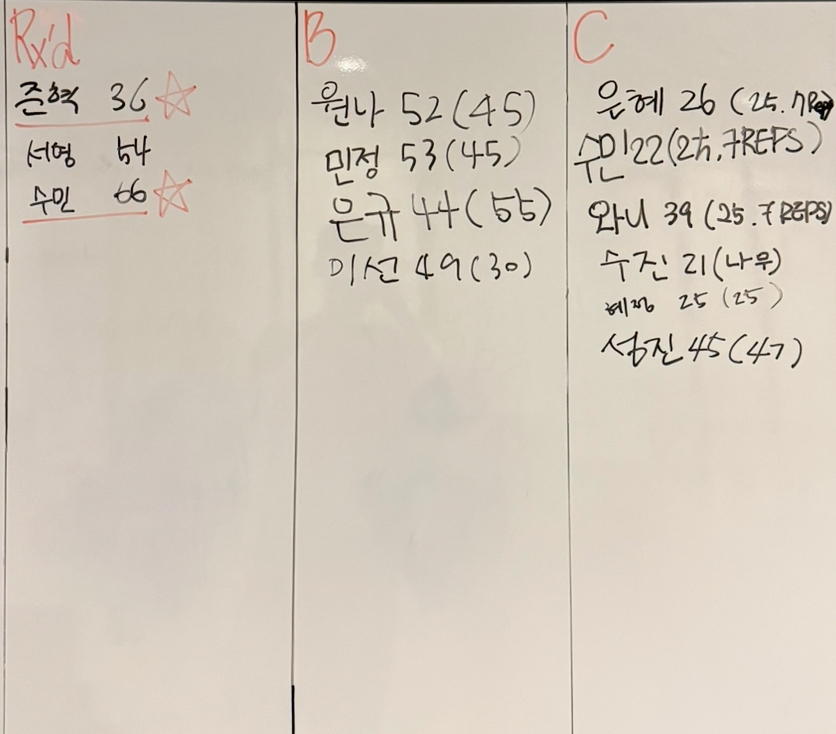 Rx'd
준혁 36
서영 54
수민 66
B
원나 52 (45)
민정 53 (45)
은규 44 (55)
미선 49 (30)
C
은혜 26 (25. 7Rep)
수민 22 (25, 7REPS)
와니 39 (25. 7 REPS)
수진 21 (나무)
혜정 25 (25)
성진 45 (47)